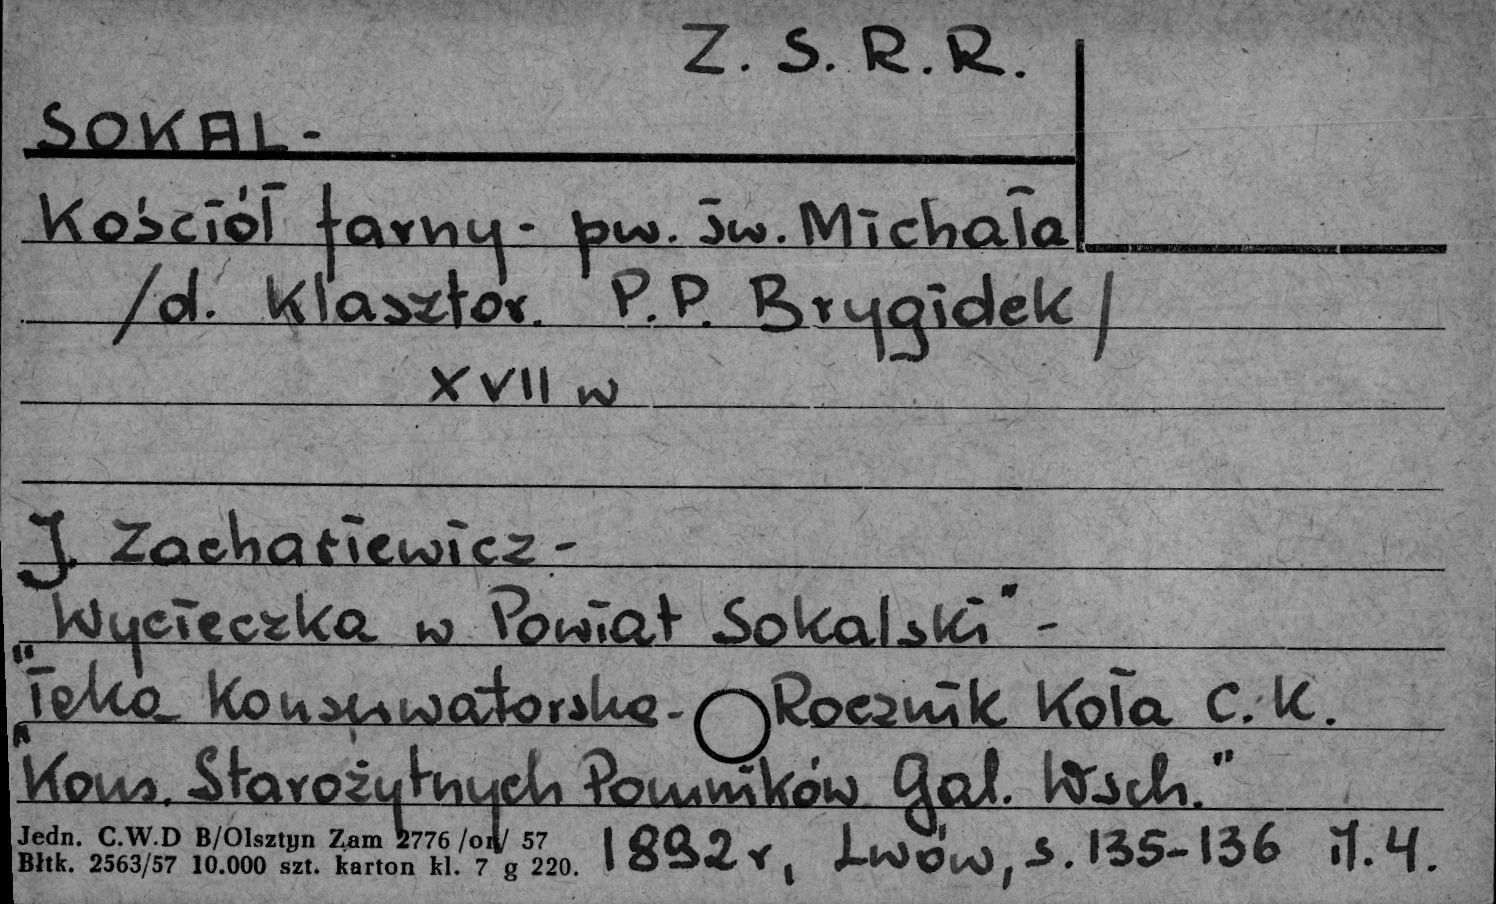 Z. S. R. R.
SOKAL-
Kościół farny- pw. św. Michała
/d. klasztor. P.P. Brygidek/
XVII w
J. Zachariewicz-
"Wycieczka w Powiat Sokalski"-
"Teka Konserwatorska- Rocznik Koła C.K.
Kons. Starożytnych Pomników Gal. Wsch."
1892 r, Lwów, s. 135-136 il. 4.
Jedn. C.W.D B/Olsztyn Zam 2776 /on/ 57
Błtk. 2563/57 10.000 szt. karton kl. 7 g 220.